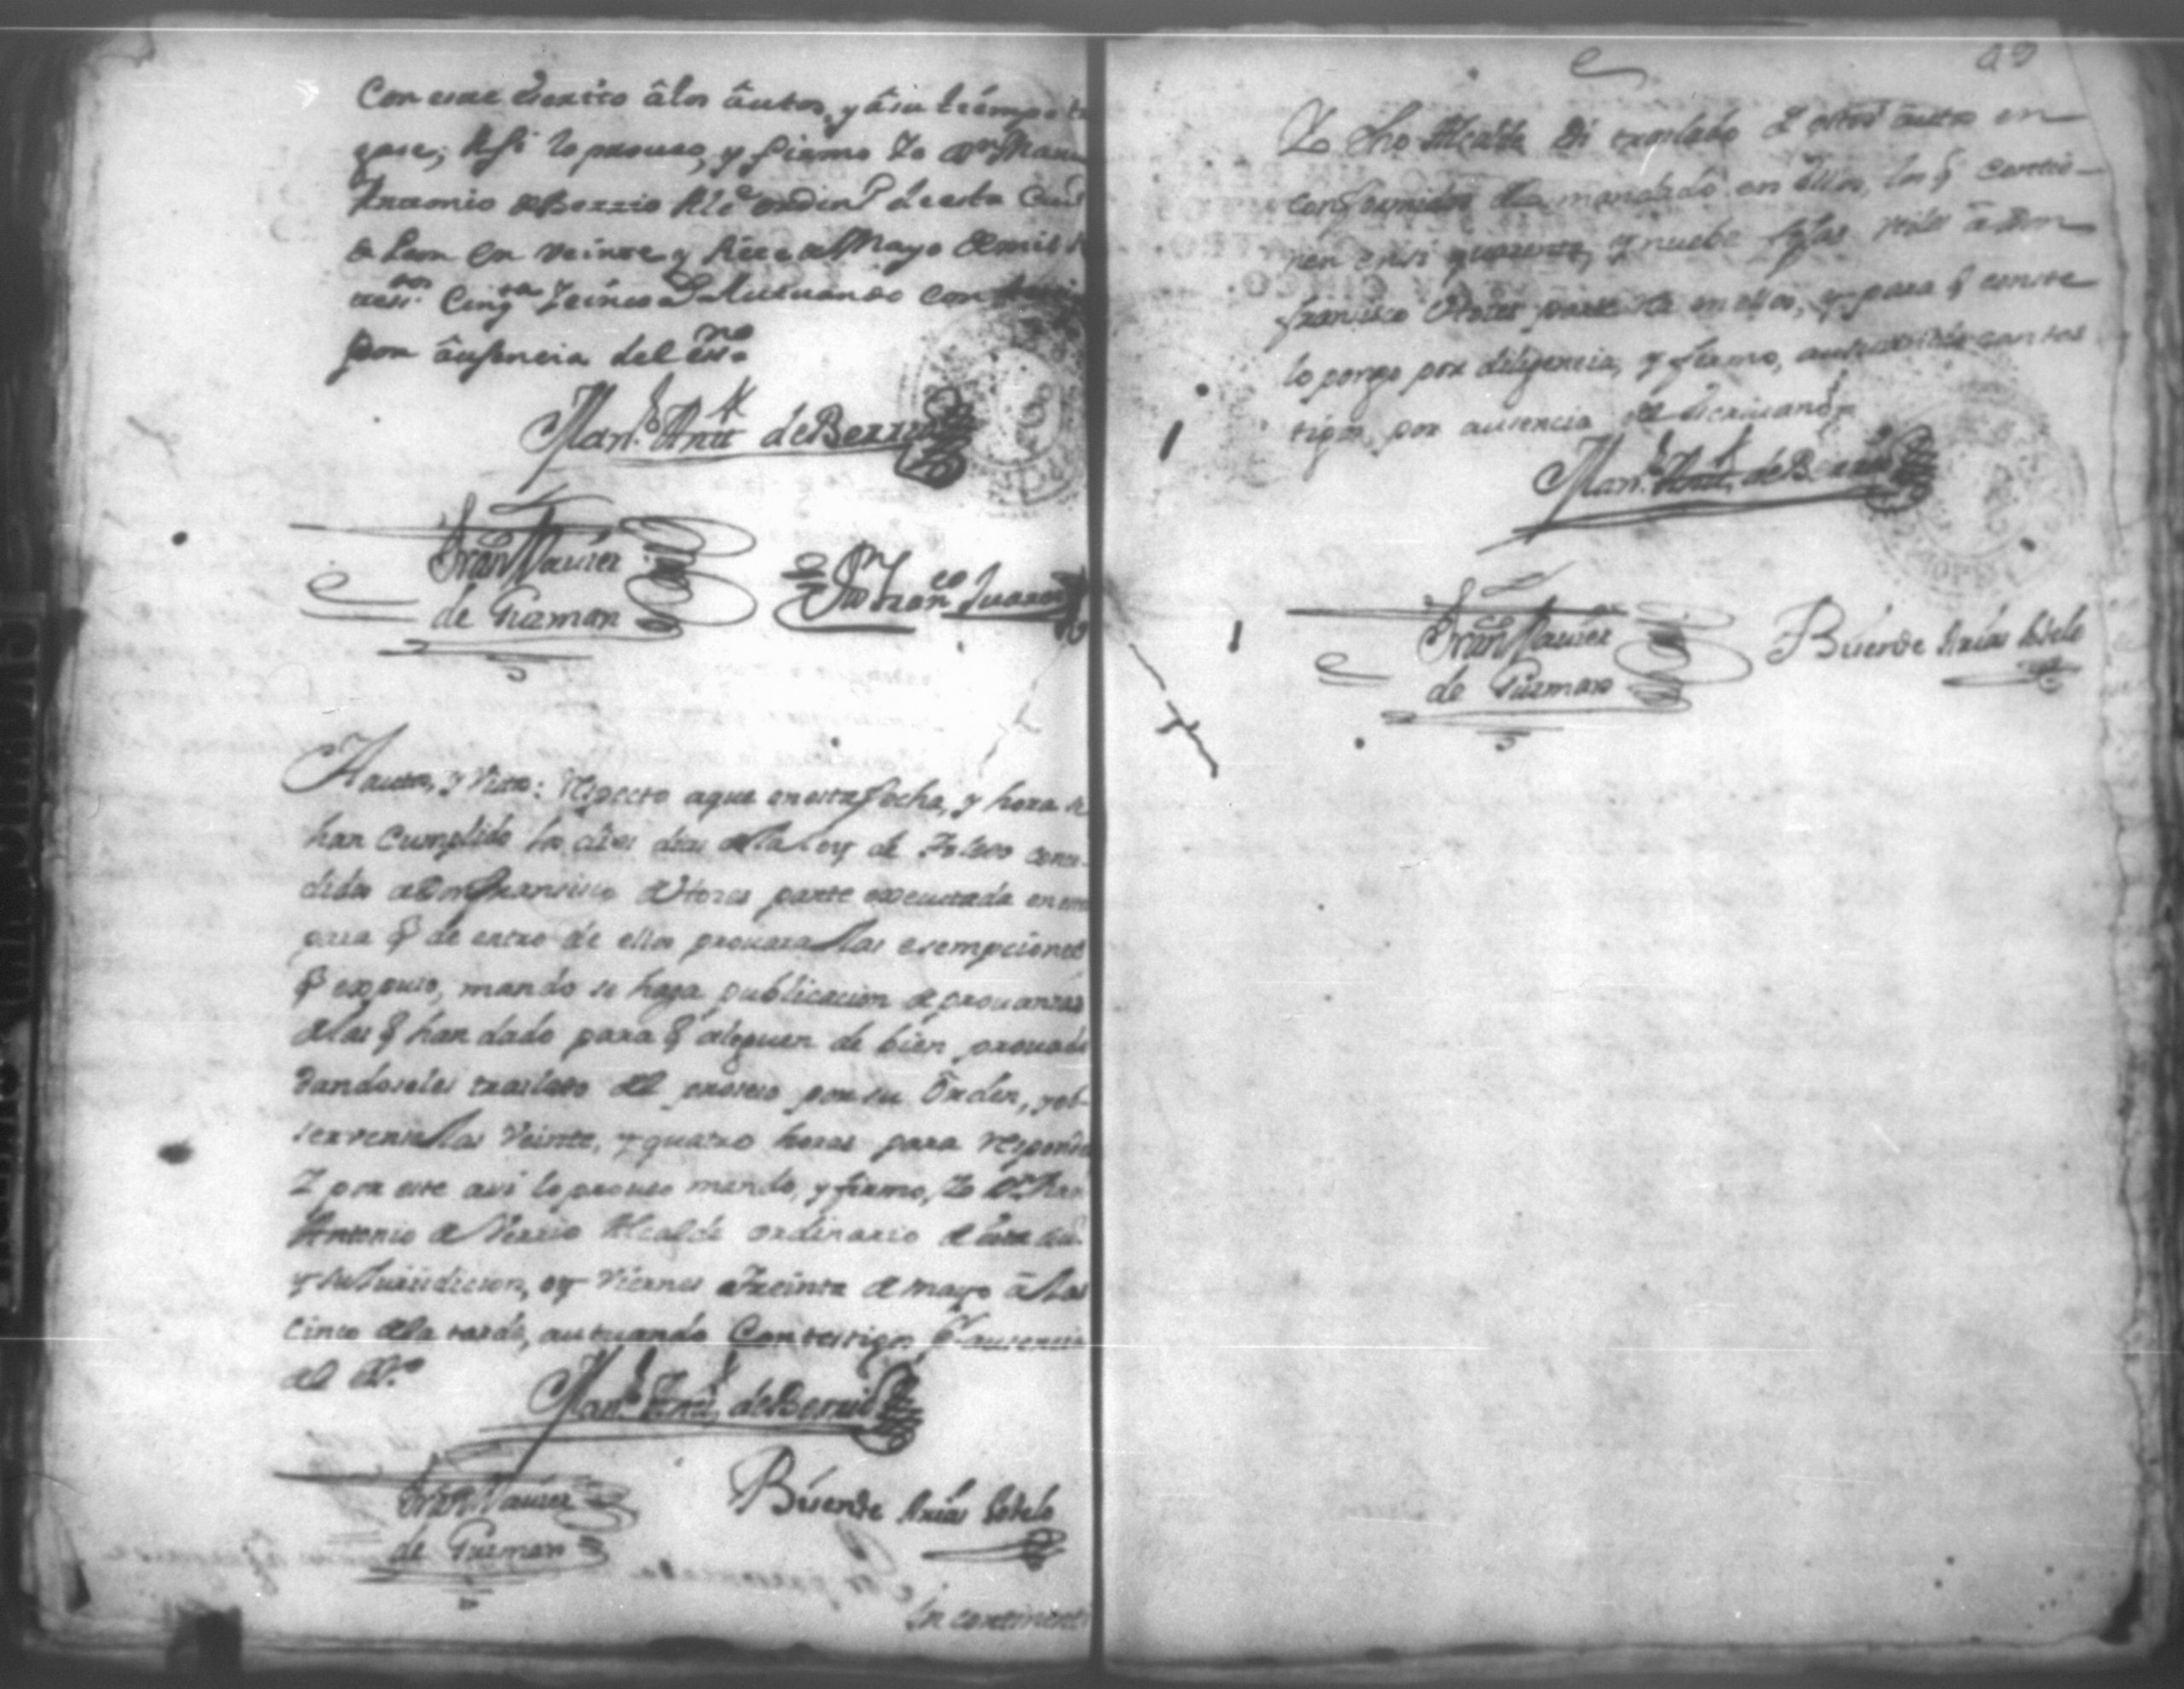 Con este escrito â los âutos, y âsu tiempo
gase; Assi lo proueo, y firmo Yo Dn Manu
Antonio de Berrio Alce ordino de esta Ciud
de Leon en veinte, y siete de Mayo de mil
tessos Cinqta y cinco Autuando con
por âusencia del essno
Manl Antto de Berrio
Frano Xauier
de Guzman
Franco Juarez
Autos, y Vistos: respecto aque en esta fecha, y hora se
han Cumplido los diez dias de la Ley de Toledo conse-
didos a Don Francisco de Stores parte executada en
para q̃ de entro de ellos prouara las esempciones
q̃ expuso, mando se haga publicacion de prouanzas
de las q̃ han dado para q̃ aleguen de bien prouado
dandoseles traslado del proceso por su Orden, y ob-
servense las Veinte, y quatro horas para
Y por este asi lo proueo mando, y firmo, Yo Dn Man
Antonio de Berrio Alcalde ordinario de esta ciud
y su Juridicion, oy Viernes a Treinta de mayo â las
Cinco de la tarde, autuando Con testigos Pr ausencia
del Esno
Manl Antto de Berrio
Frano Xauier
de Guzman
Búenðe Arias Sotelo
In continenti
49
Yo dho Alcalde di traslado de estos âutos en
conformidad de lo mandado en ellos, los q̃ contie-
nen en si quarenta, y nuebe fojas utiles â Don
Francisco Stores parte en ellos, y para q̃ conste
lo pongo por diligencia, y firmo, autuando con tes
tigos, por ausencia de escriuano
Manl Antto de Berrio
Frano Xauier
de Guzman
Búenðe Arias Sotelo